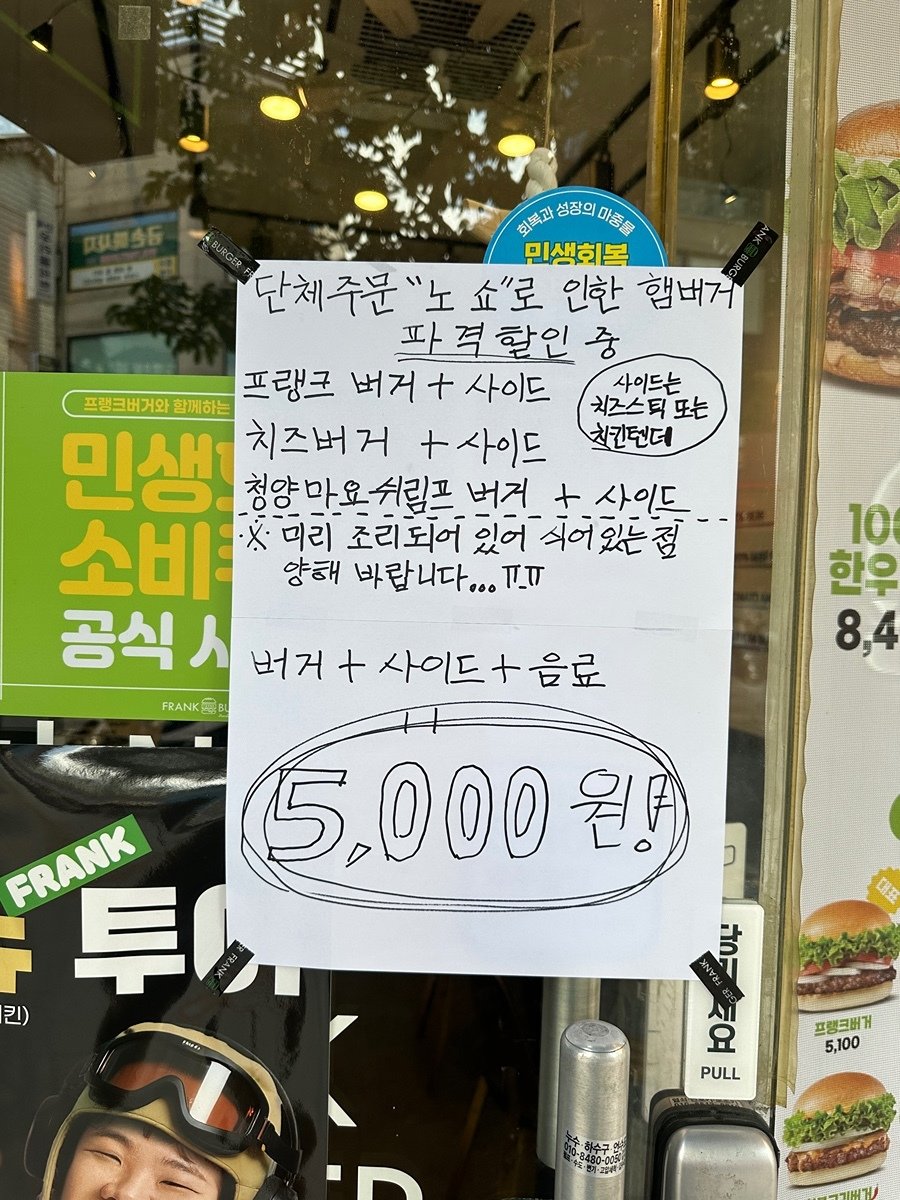 회복과 성장의 마중물
민생회복
BURGER FR
ANK BURG
단체주문 "노 쇼"로 인한 햄버거
파격할인 중
프랭크 버거 + 사이드
치즈버거 + 사이드
청양마요쉬림프 버거 + 사이드
사이드는
치즈스틱 또는
치킨텐더
※ 미리 조리되어 있어 식어있는점
양해 바랍니다... ㅠ_ㅠ
버거 + 사이드 + 음료
5,000 원!
프랭크버거와 함께하는
민생
소비
공식
FRANK BU
FRANK
투
킨)
ER FRANK
GER FRANK
PULL
100
한우
8,4
대표
프랭크버거
5,100
누수·하수구
010-8480-005